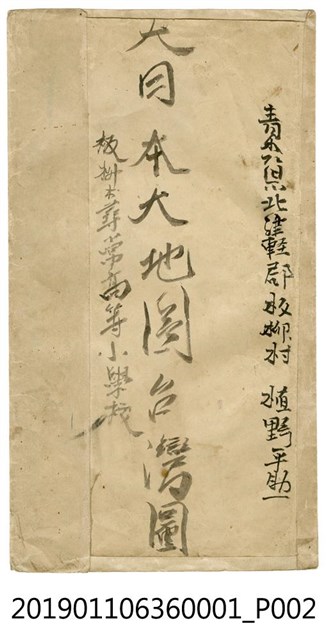 青森県北津軽郡板柳村 植野平助
大日本大地図台湾圖
板柳尋常高等小學校
201901106360001_P002